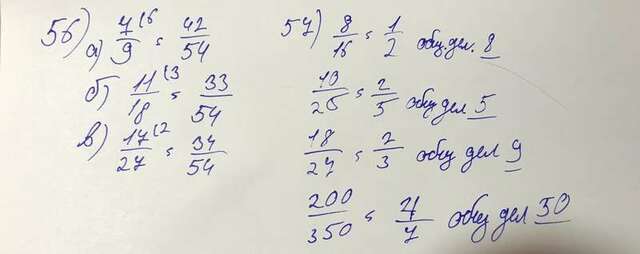 56) а) 7/9 (6 = 42/54
б) 11/18 (3 = 33/54
в) 17/27 (2 = 34/54
57) 8/16 = 1/2 общ. дел. 8
10/25 = 2/5 общ дел 5
18/27 = 2/3 общ дел 9
200/350 = 4/7 общ дел 50